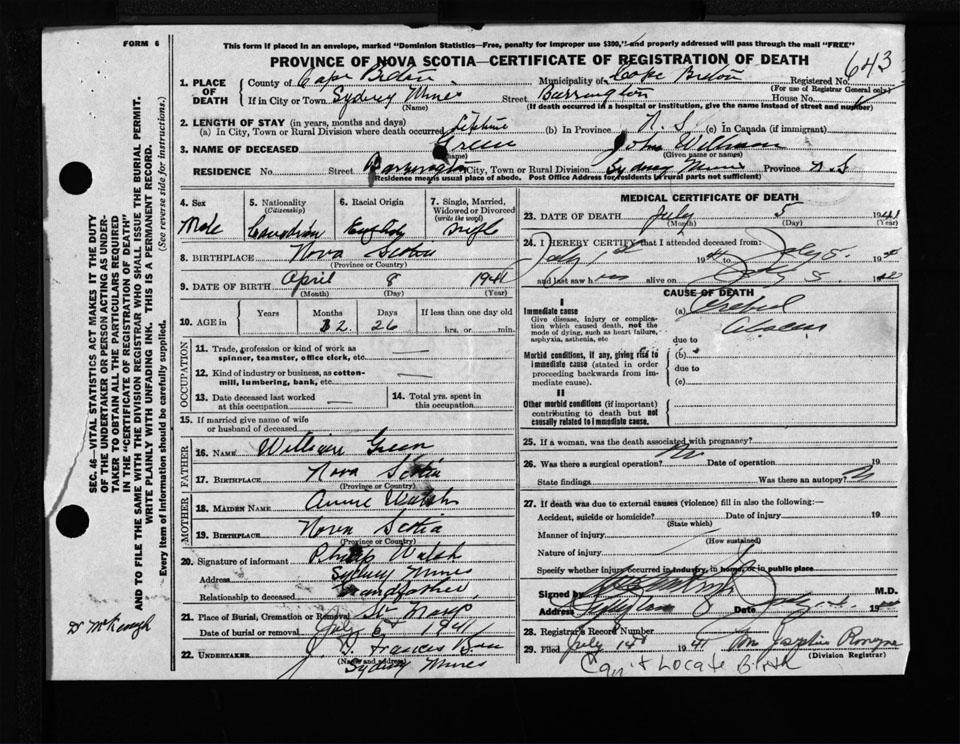 FORM 6
This form if placed in an envelope, marked "Dominion Statistics—Free, penalty for improper use $300," and properly addressed will pass through the mail "FREE"
PROVINCE OF NOVA SCOTIA—CERTIFICATE OF REGISTRATION OF DEATH
643
1. PLACE OF DEATH
County of Cape Breton Municipality of Cape Breton Registered No.
(For use of Registrar General only)
If in City or Town Sydney Mines Street Barrington House No.
(Name) (If death occurred in a hospital or institution, give the name instead of street and number)
2. LENGTH OF STAY (in years, months and days)
(a) In City, Town or Rural Division where death occurred Lifetime (b) In Province N.S (c) In Canada (if immigrant)
3. NAME OF DECEASED Green John William
(name) (Given name or names)
RESIDENCE No. Street Barrington City, Town or Rural Division Sydney Mines Province N.S
Residence means usual place of abode. Post Office Address for residents in rural parts not sufficient)
4. Sex
Male
5. Nationality
(Citizenship)
Canadian
6. Racial Origin
English
7. Single, Married, Widowed or Divorced
(write the word)
Single
8. BIRTHPLACE Nova Scotia
(Province or Country)
9. DATE OF BIRTH April 8 1941
(Month) (Day) (Year)
10. AGE in
Years Months Days If less than one day old
2 26 hrs. or min.
OCCUPATION
11. Trade, profession or kind of work as spinner, teamster, office clerk, etc. —
12. Kind of industry or business, as cotton-mill, lumbering, bank, etc. —
13. Date deceased last worked at this occupation —
14. Total yrs. spent in this occupation
15. If married give name of wife or husband of deceased
FATHER
16. NAME William Green
17. BIRTHPLACE Nova Scotia
(Province or Country)
MOTHER
18. MAIDEN NAME Annie Walsh
19. BIRTHPLACE Nova Scotia
(Province or Country)
20. Signature of informant Philip Walsh
Address Sydney Mines
Relationship to deceased Grandfather
21. Place of Burial, Cremation or Removal
Date of burial or removal July 6 1941
22. UNDERTAKER J. Francis
(Name and address)
Sydney Mines
MEDICAL CERTIFICATE OF DEATH
23. DATE OF DEATH July 5 1941
(Month) (Year)
24. I HEREBY CERTIFY that I attended deceased from:
July 1st 19 to July 5 19
and last saw h im alive on July 5 19
CAUSE OF DEATH
I
Immediate cause
Give disease, injury or complication which caused death, not the mode of dying, such as heart failure, asphyxia, asthenia, etc
(a)
due to
Morbid conditions, if any, giving rise to immediate cause (stated in order proceeding backwards from immediate cause).
(b)
due to
(c)
II
Other morbid conditions (if important) contributing to death but not causally related to immediate cause.
25. If a woman, was the death associated with pregnancy?
26. Was there a surgical operation? No Date of operation 19
State findings Was there an autopsy?
27. If death was due to external causes (violence) fill in also the following:—
Accident, suicide or homicide? Date of injury 19
(State which)
Manner of injury
(How sustained)
Nature of injury
Specify whether injury occurred in industry, in home, or in public place
Signed by M.D.
Address Date July 19
28. Registrar's Record Number
29. Filed July 14 1941
(Division Registrar)
Can't Locate Birth
SEC. 46—VITAL STATISTICS ACT MAKES IT THE DUTY OF THE UNDERTAKER OR PERSON ACTING AS UNDERTAKER TO OBTAIN ALL THE PARTICULARS REQUIRED IN THE "CERTIFICATE OF REGISTRATION OF DEATH"
AND TO FILE THE SAME WITH THE DIVISION REGISTRAR WHO SHALL ISSUE THE BURIAL PERMIT.
WRITE PLAINLY WITH UNFADING INK. THIS IS A PERMANENT RECORD.
Every item of information should be carefully supplied. (See reverse side for instructions.)
Dr McKeough